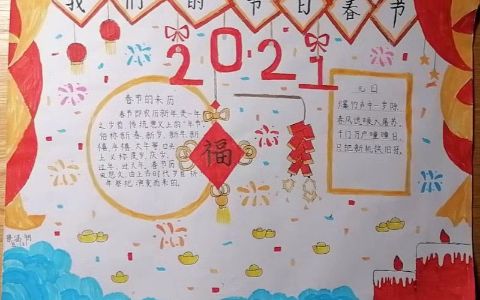 我们的节日春节
2021
春节的来历
春节即农历新年,是一年
之岁首,传统意义上的"年节"。
俗称新春、新岁、新年、新
禧、年禧、大年等,口头
上又称度岁、庆岁、
过年、过大年。春节历
史悠久,由上古时代岁首祈
年祭祀演变而来的。
福
元日
爆竹声中一岁除,
春风送暖入屠苏。
千门万户曈曈日,
总把新桃换旧符。